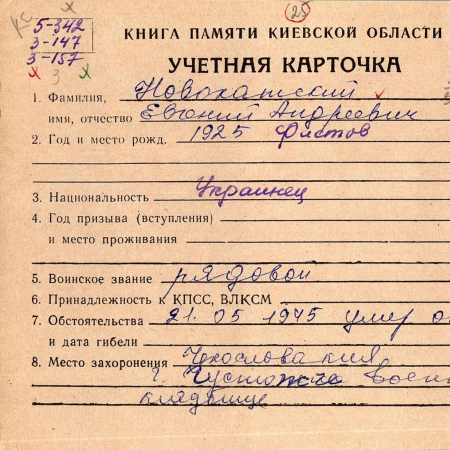 5-342
3-147
3-157
25
КНИГА ПАМЯТИ КИЕВСКОЙ ОБЛАСТИ
УЧЕТНАЯ КАРТОЧКА
1. Фамилия, Новохатский
имя, отчество Евгений Андреевич
2. Год и место рожд. 1925 Фастов
3. Национальность Украинец
4. Год призыва (вступления)
и место проживания
5. Воинское звание рядовой
6. Принадлежность к КПСС, ВЛКСМ
7. Обстоятельства 21.05 1945 умер о
и дата гибели
8. Место захоронения Чехословакия
г. воен
кладбище